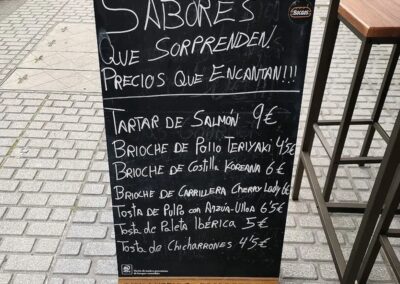 SABORES
QUE SORPRENDEN.
PRECIOS QUE ENCANTAN!!!
TARTAR DE SALMÓN 9€
BRIOCHE DE POLLO TERIYAKI 4'5€
BRIOCHE DE COSTILLA KOREANA 6€
BRIOCHE DE CARRILLERA CHERRY LADY 6€
TOSTA DE PULPO CON ARZÚA-ULLOA 6'5€
TOSTA DE PALETA IBÉRICA 5€
TOSTA DE CHICHARRONES 4'5€